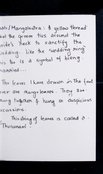 Mangalsutra: A yellow thread
the groom ties around the
wife's neck to sanctify the
wedding. Like the wedding ring
is a symbol of being
married.
The leaves I have drawn in the font
are mango leaves. They are
strung together & hung on auspicious
occasions.
This string of leaves is called a
'Thoranam'.